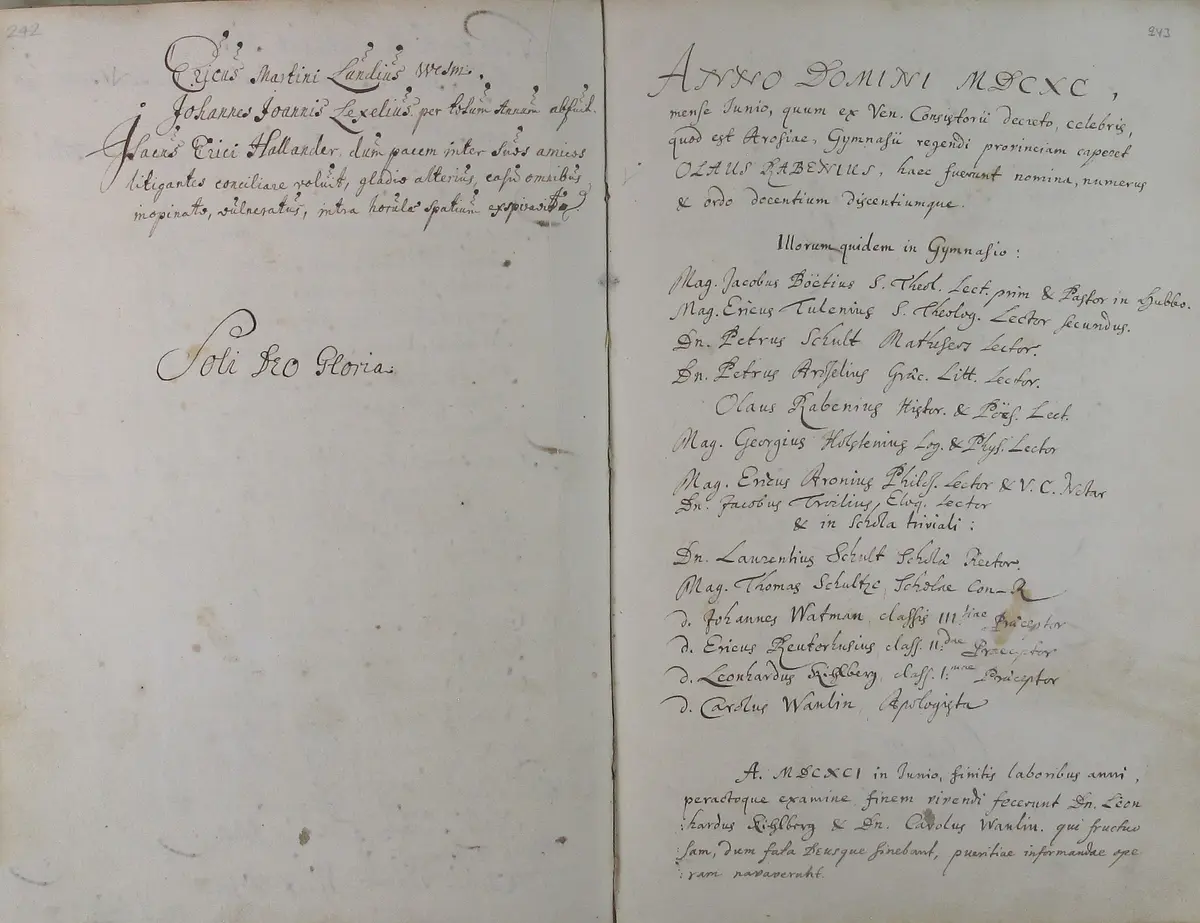 242
Ericus Martini Lundius Wesm.
Johannes Joannis Lexelius per totum Annum abfuit.
Isacus Erici Hallander, dum pacem inter suos amicos
litigantes conciliare voluit, gladio alterius, casu omnibus
inopinato, vulneratus, intra horulæ spatium exspiravit.
Soli DEO Gloria.
243
ANNO DOMINI MDCXC,
mense Junio, quum ex Ven. Consistorii decreto, celebris,
quod est Arosiae, Gymnasii regendi provinciam caperet
OLAUS RABENIUS, haec fuerunt nomina, numerus
& ordo docentium discentiumque.
Illorum quidem in Gymnasio:
Mag. Jacobus Boëtius S. Theol. Lect. prim & Pastor in Hubbo.
Mag. Ericus Tulenius S. Theolog. Lector secundus.
Dn. Petrus Schult Matheseos Lector.
Dn. Petrus Arosselius Græc. Litt. Lector.
Olaus Rabenius Histor. & Poës. Lect.
Mag. Georgius Holstenius Log. & Phys. Lector
Mag. Ericus Aronius Philos. Lector & V. C. Notar
Dn. Jacobus Troilius, Eloq. Lector
& in Schola triviali:
Dn. Laurentius Schult Scholæ Rector.
Mag. Thomas Schultze, Scholae Con-R
d. Johannes Watman classis III tiae Præceptor
d. Ericus Reutorhusius class. II:dae Præceptor
d. Leonhardus Kihlberg, class. I:mae Præceptor
d. Carolus Wanlin Apologista
A. MDCXCI in Junio, finitis laboribus anni,
peractoque examine, finem vivendi fecerunt Dn. Leon
:hardus Kihlberg & Dn. Carolus Wanlin. qui fructuo
:sam, dum fata Deusque sinebant, pueritiae informandae ope
:ram navaverunt.